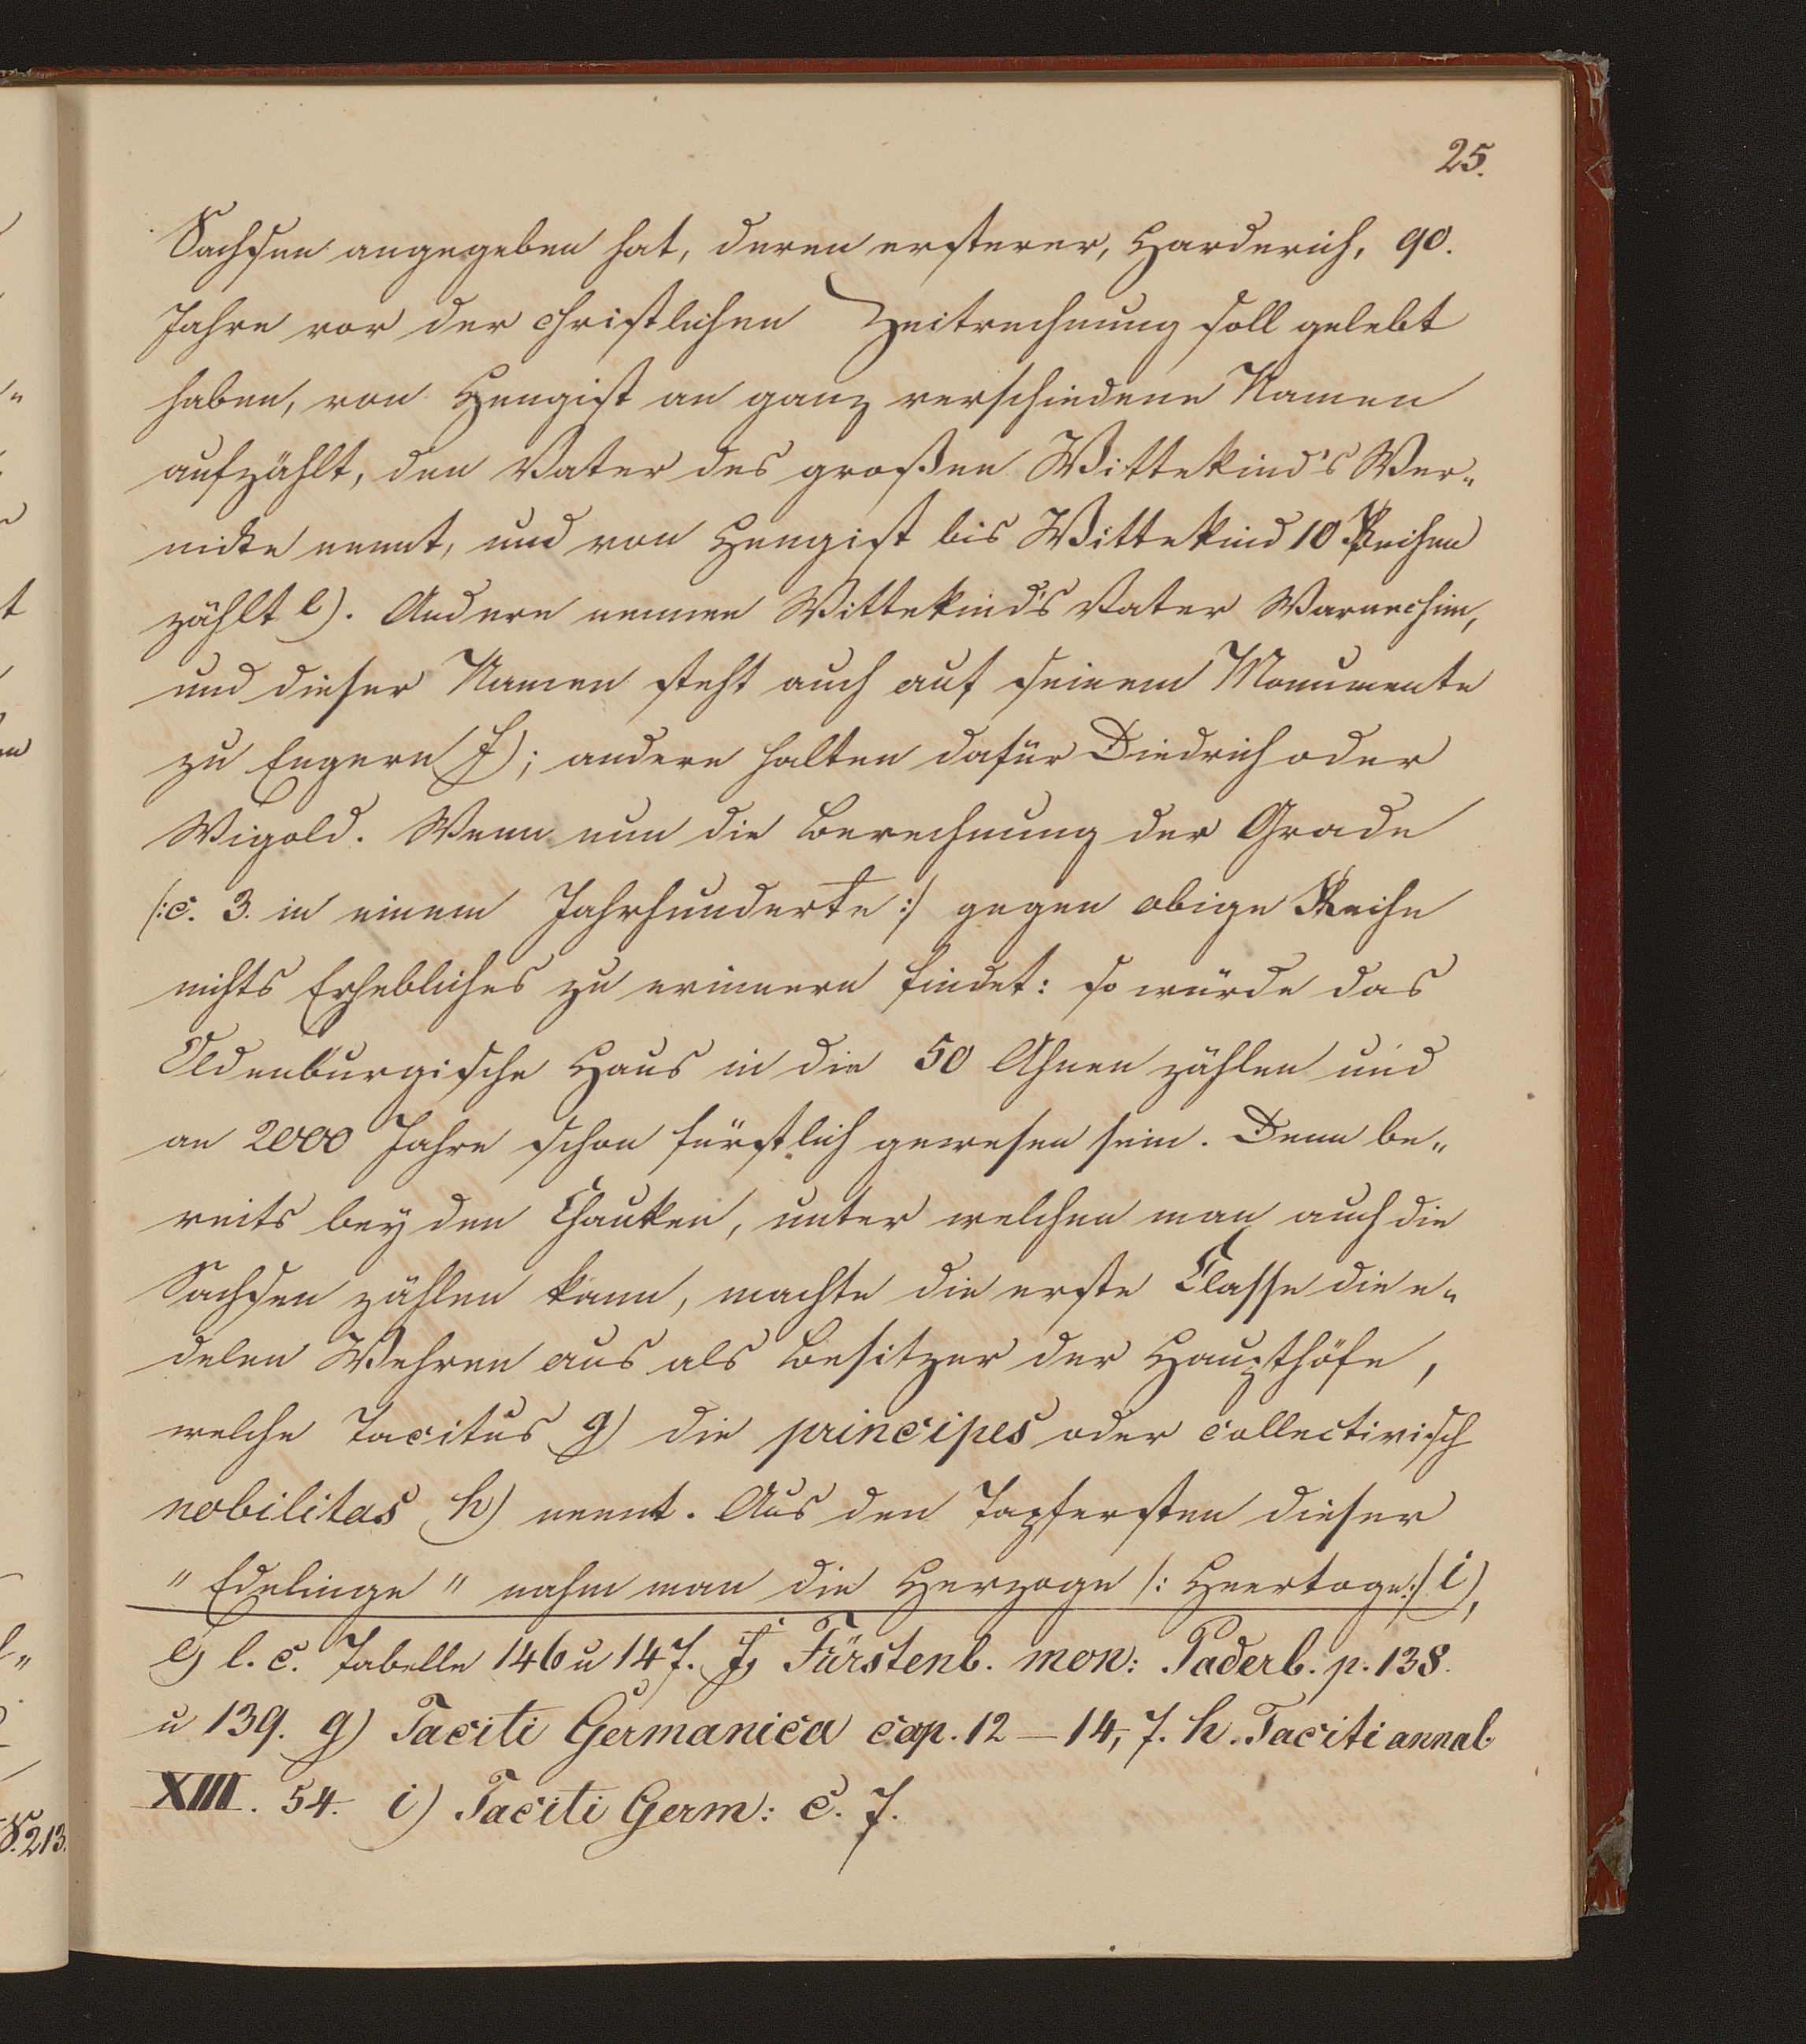 25.
Sachsen angegeben hat, deren ersterer, Harderich, 90.
Jahre vor der christlichen Zeitrechnung soll gelebt
haben, von Hengist an ganz verschiedene Namen
aufzählt, den Vater des großen Wittekind's Wer„
nicke nennt, und von Hengist bis Wittekind 10 Reihen
zählt e). Andere nennen Wittekind's Vater Warnechim,
und dieser Namen steht auch auf seinem Monumente
zu Engern f); andere halten dafür Diedrich oder
Wigold. Wenn nun die Berechnung der Grade
/:c. 3. in einem Jahrhunderte:/ gegen obige Reihe
nichts Erhebliches zu erinnern findet: so würde das
Oldenburgische Haus in die 50 Ahnen zählen und
an 2000 Jahre schon fürstlich gewesen sein. Denn be„
reits bey den Chauken, unter welchen man auch die
Sachsen zählen kann, machte die erste Classe die e„
delen Wehren aus als Besitzer der Haupthöfe,
welche Tacitus g) die principes oder collectivisch
nobilitas h) nennt. Aus den Tapfersten dieser
„Edelinge„ nahm man die Herzoge /: Heertoge:/ i),
e) l. c. Tabelle 146 u 147. f) Fürstenb. mon: Paderb. p. 138.
u 139. g) Taciti Germanica cap. 12 — 14, 7. h. Taciti annal.
XIII. 54. i) Taciti Germ: c. 7.
S. 213.